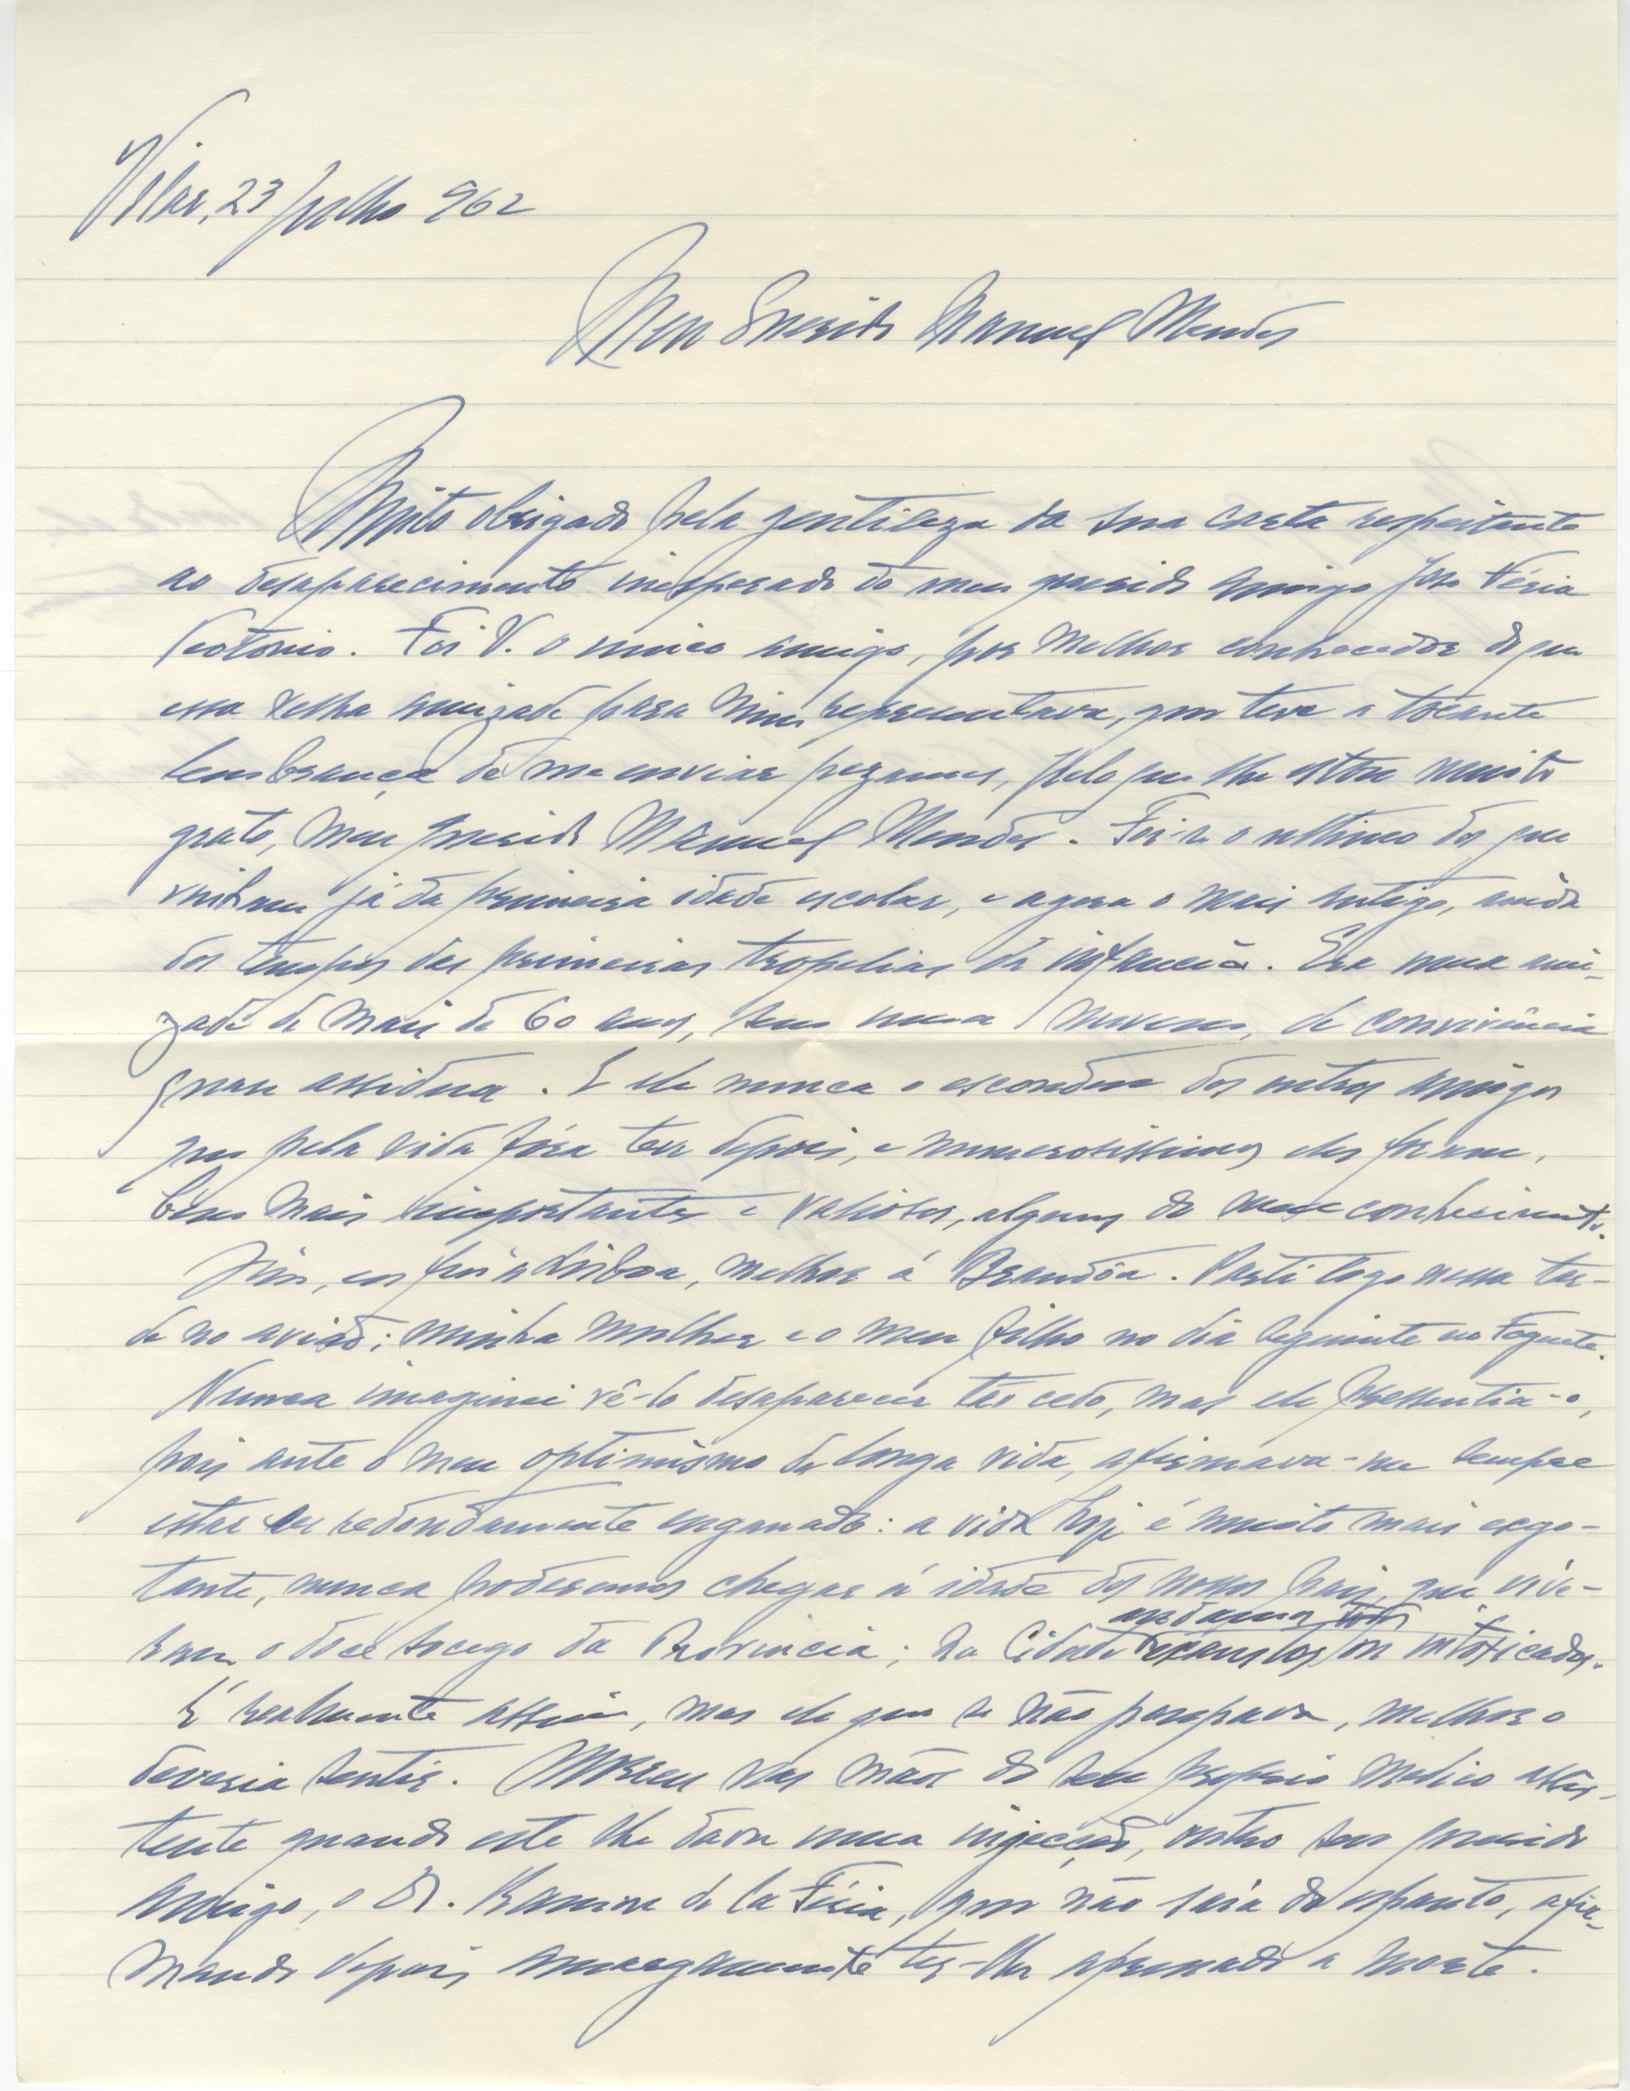 Vilar, 23 Julho 962
Meu Querido Manuel Mendes
Muito obrigado pela gentileza da sua carta respeitante
ao desaparecimento inesperado do meu querido amigo João Féria
Teotonio. Foi V. o unico amigo, por melhor conhecedor do que
essa velha amizade para mim representava, que teve a tocante
lembrança de me enviar pezames, pelo que lhe estou muito
grato, meu querido Manuel Mendes. Foi-se o ultimo dos que
vinham já da primeira idade escolar, e agora o mais antigo, ainda
dos tempos das primeiras tropelias da infancia. Era uma ami-
zade de mais de 60 anos, sem uma nuvem, de convivência
quase assidua. E ele nunca o escondeu dos outros amigos
que pela vida fóra teve depois, e numerosissimos eles foram,
bem mais importantes e valiosos, alguns do seu conhecimento.
Sim, eu fui a Lisboa, melhor á Brandôa. Parti logo nessa tar-
de no avião; minha mulher e o meu filho no dia seguinte no Foguete.
Nunca imaginei vê-lo desaparecer tão cedo, mas ele pressentia-o,
pois ante o meu optimismo da longa vida, afirmava-me sempre
estar eu redondamente enganado: a vida hoje é muito mais exgo-
tante, nunca poderemos chegar á idade dos nossos pais, que vive-
ram o doce socego da Provincia; na Cidade andamos todos exaustos ou intoxicados.
É realmente assim, mas ele que se não poupava, melhor o
deveria sentir. Morreu nas mãos do seu proprio medico assis-
tente quando este lhe dava uma injecção, outro seu querido
amigo, o Dr. Ramon de la Féria, que não saía do espanto, afir-
mando depois amargamente ter-lhe apressado a morte.